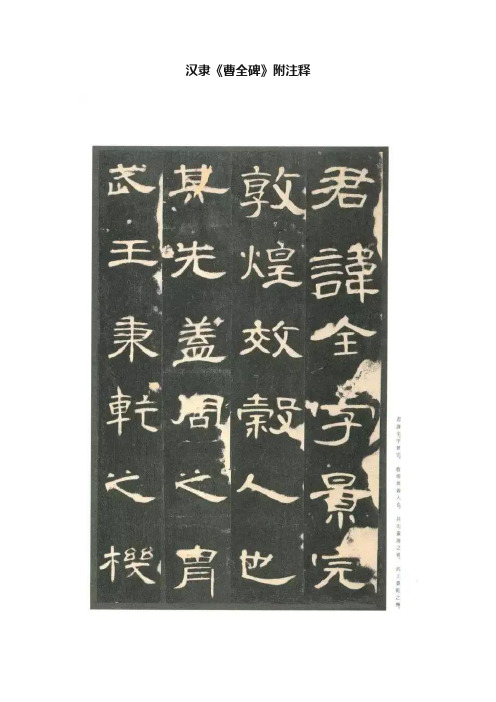 汉隶《曹全碑》附注释
君諱全字景完
敦煌效穀人也
其先蓋周之胄
武王秉乾之機
君諱全字景完，敦煌效穀人也。其先蓋周之胄，武王秉乾之機，